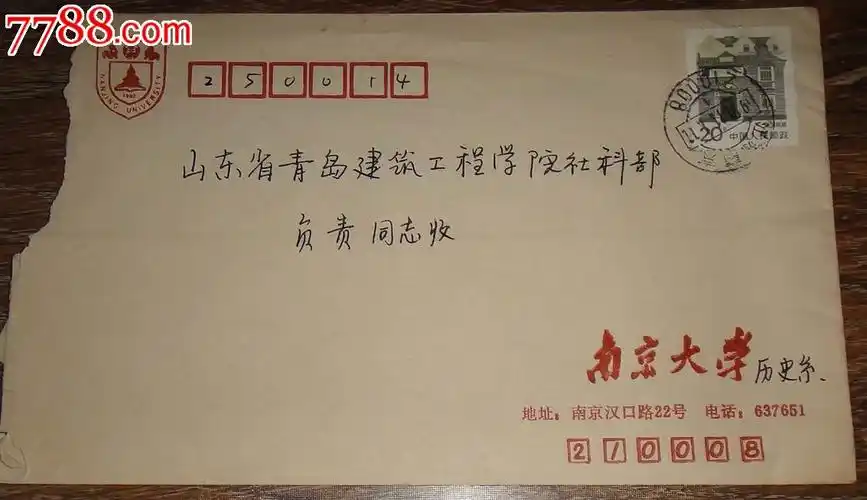 7788.com
NANJING UNIVERSITY
1902
250014
20 中国人民邮政
山东省青岛建筑工程学院社科部
负责同志收
南京大学 历史系.
地址：南京汉口路22号 电话：637651
210008